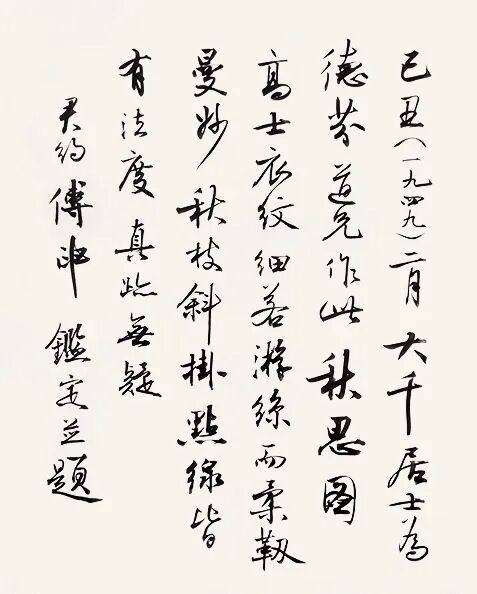 己丑（一九四九）二月大千居士為
德芬道兄作此秋思图
高士衣紋細若游絲而柔韌
曼妙秋枝斜掛點線皆
有法度真跡無疑
君約傅申鑑定並題